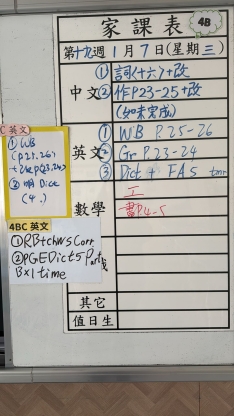 家課表 4B
第十九週 1月7日(星期三)
中文 ① 詞(十六)+改
② 作P23-25+改
(如未完成)
英文 ① WB P.25-26
② Gr P.23-24
③ Dict + FAs tmr
數學 工
書P4-5
其它
值日生
C 英文
① WB
(P.25-26)
② 明 Dict
4BC 英文
①RB+ch WS Corr
②PGE Dict 5 Part
B×1 time